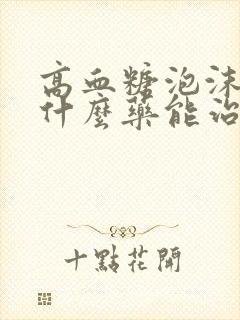 高血糖泡沫
什麼藥能治
十點花開